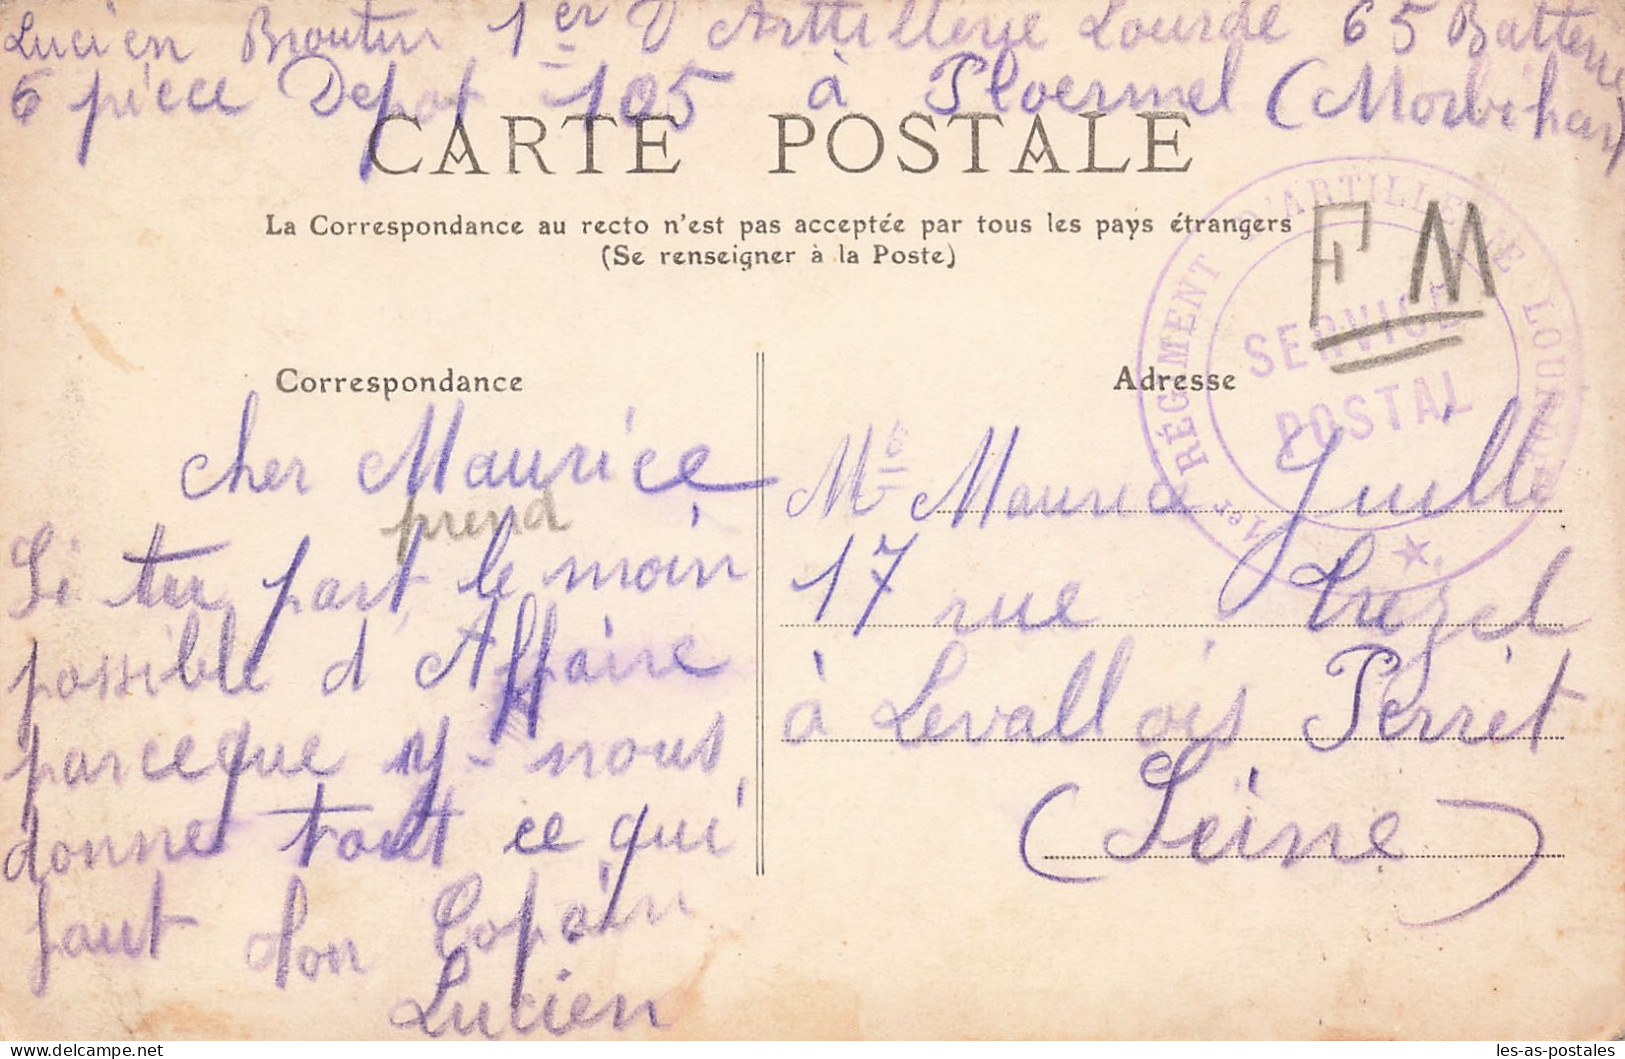 Lucien Broutin 1er d'Arttillerie Lourde 65 Batterie
6 pièce Depot 105 à Ploermel (Morbihan)
CARTE POSTALE
La Correspondance au recto n'est pas acceptée par tous les pays étrangers
(Se renseigner à la Poste)
1er RÉGIMENT D'ARTILLERIE LOURDE
SERVICE
POSTAL
F M
Correspondance
cher Maurice
prend
Si tu part, le moin
possible d Affaire
parceque y nous
donne tout ce qui
faut Ton Copain
Lucien
Adresse
Mr Maurice Juille
17 rue Trezel
à Levallois Perret
(Seine)
les-as-postales